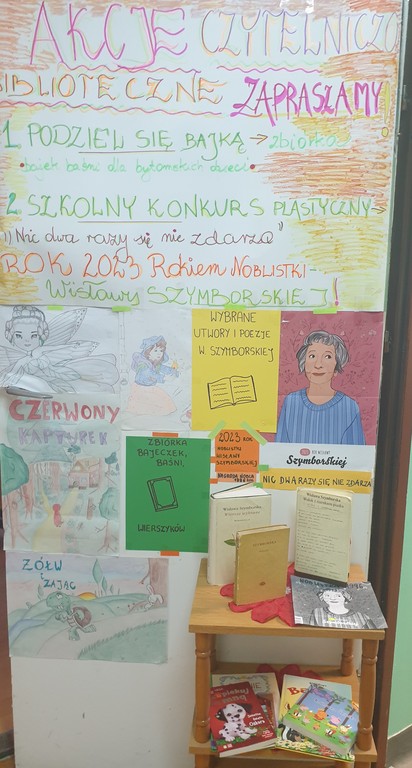 AKCJE CZYTELNICZO
BIBLIOTECZNE ZAPRASZAMY!
1. PODZIEL SIĘ BAJKĄ → zbiórka
bajek baśni dla bytomskich dzieci
2. SZKOLNY KONKURS PLASTYCZNY→
"Nic dwa razy się nie zdarza"
ROK 2023 Rokiem NOBLISTKI-
Wisławy SZYMBORSKIEJ!
WYBRANE
UTWORY I POEZJE
W. SZYMBORSKIEJ
CZERWONY
KAPTUREK
ZBIÓRKA
BAJECZEK,
BAŚNI,
WIERSZYKÓW
2023 ROK
NOBLISTKI
WISŁAWY
SZYMBORSKIEJ
NAGRODA NOBLA
1996 R.
ROK WISŁAWY
Szymborskiej
NIC DWA RAZY SIĘ NIE ZDARZA
ŻÓŁW
I
ZAJĄC
Wisława Szymborska
Wisława Szymborska